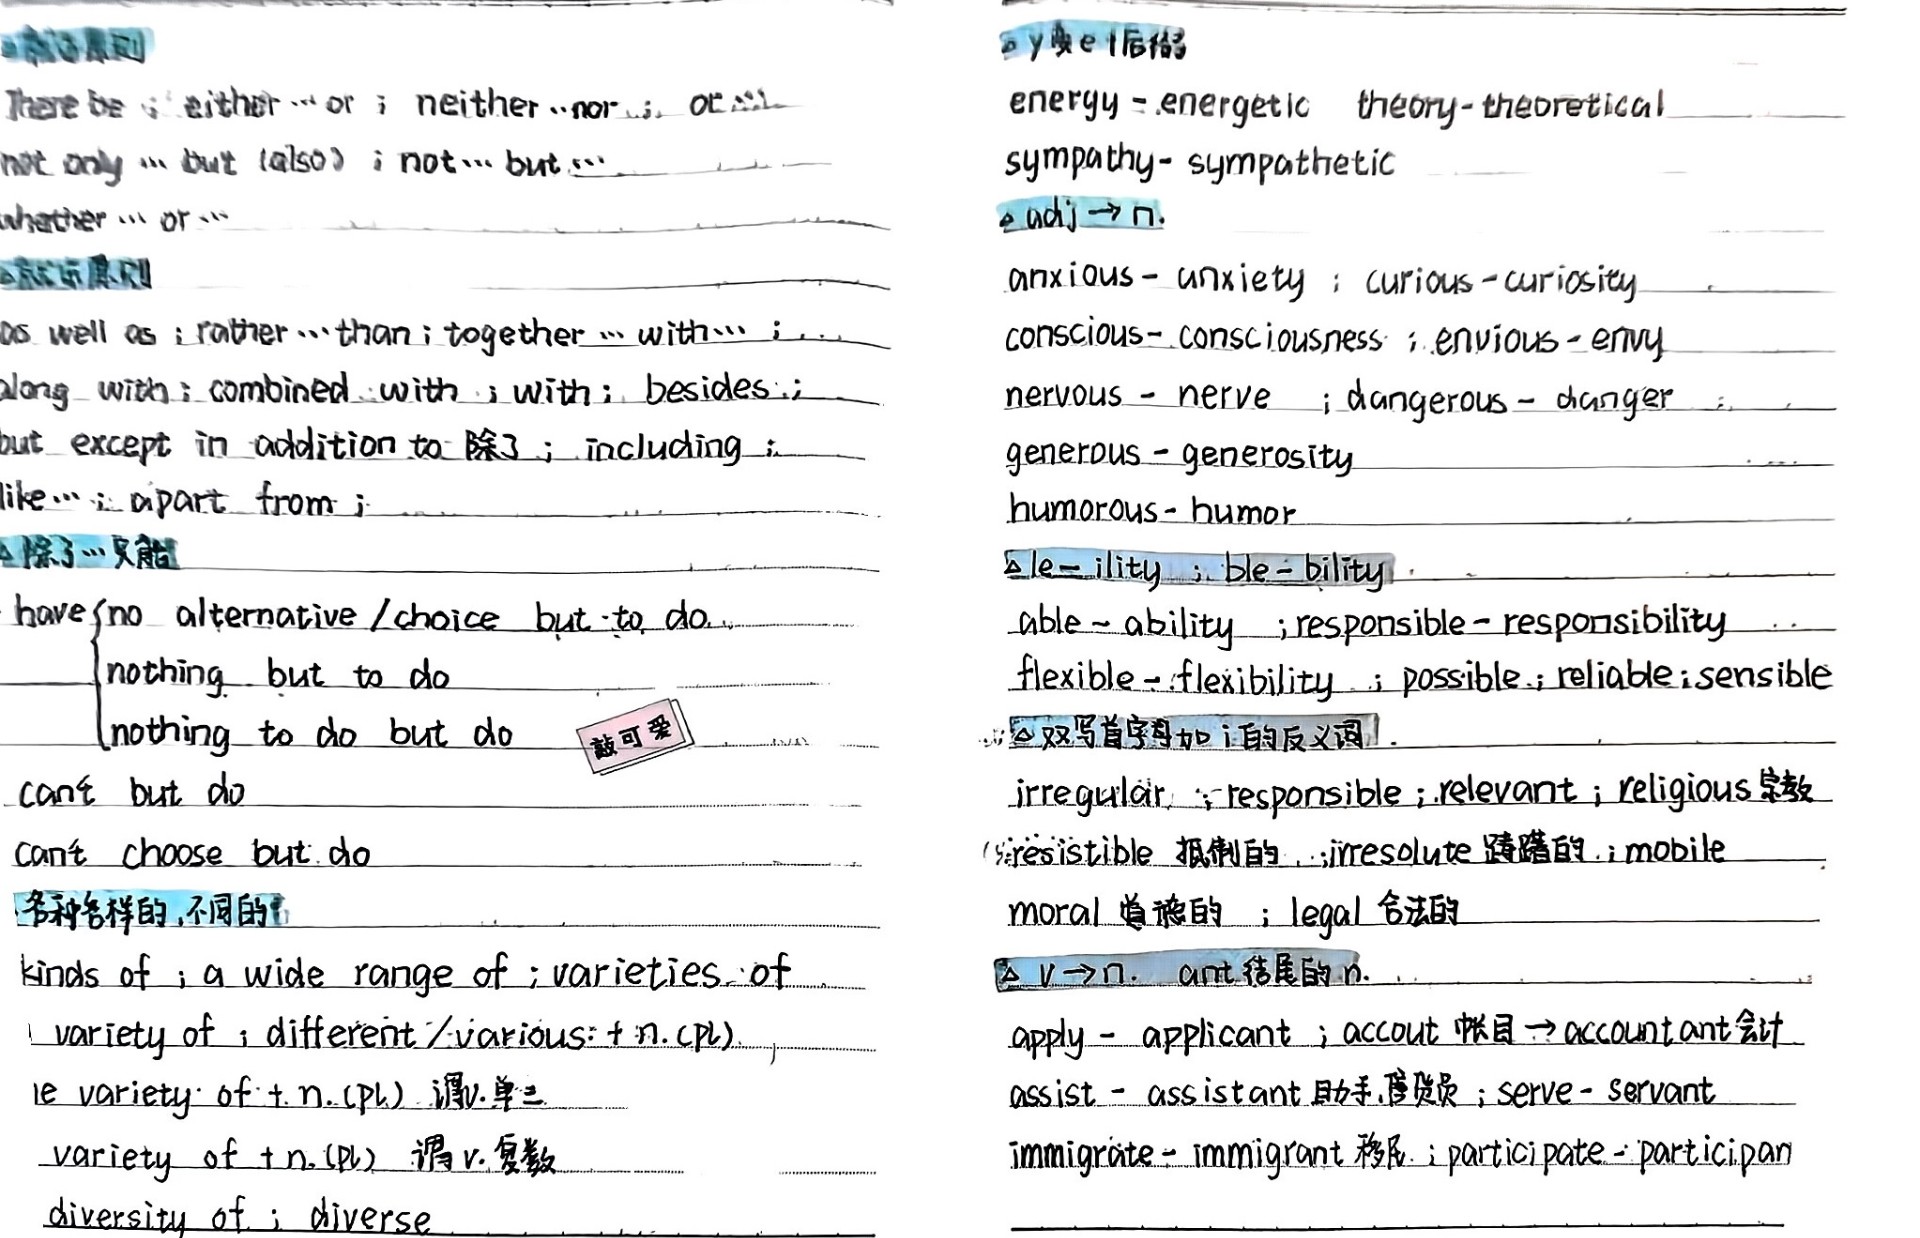 △就近原则
There be ; either … or ; neither … nor ; or …
not only … but (also) ; not … but …
whether … or …
△就远原则
as well as ; rather … than ; together … with … ;
along with ; combined with ; with ; besides ;
but except in addition to 除了 ; including ;
like … ; apart from ;
△除了…只能
have { no alternative / choice but to do
nothing but to do
nothing to do but do
敲可爱
can't but do
can't choose but do
各种各样的,不同的
kinds of ; a wide range of ; varieties of
variety of ; different / various + n. (pl)
le variety of + n. (pl) 谓v.单三
variety of + n. (pl) 谓v.复数
diversity of ; diverse
△y变et后缀
energy - energetic theory - theoretical
sympathy - sympathetic
△adj → n.
anxious - anxiety ; curious - curiosity
conscious - consciousness ; envious - envy
nervous - nerve ; dangerous - danger ;
generous - generosity
humorous - humor
△le - ility ; ble - bility
able - ability ; responsible - responsibility
flexible - flexibility ; possible ; reliable ; sensible
△双写首字母加i的反义词
irregular ; responsible ; relevant ; religious 宗教
resistible 抵制的 ; irresolute 踌躇的 ; mobile
moral 道德的 ; legal 合法的
△v → n. ant结尾的n.
apply - applicant ; accout 帐目 → accountant 会计
assist - assistant 助手,售货员 ; serve - servant
immigrate - immigrant 移民 ; participate - participan